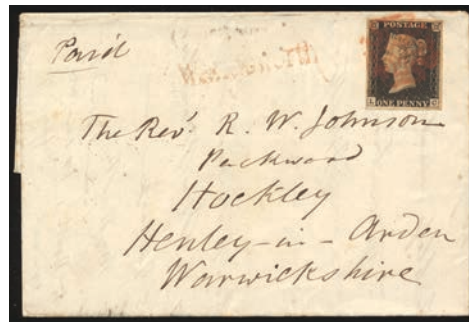 POSTAGE
Paid
ONE PENNY
The Revd. R. W. Johnson
Packwood
Hockley
Henley-in-Arden
Warwickshire